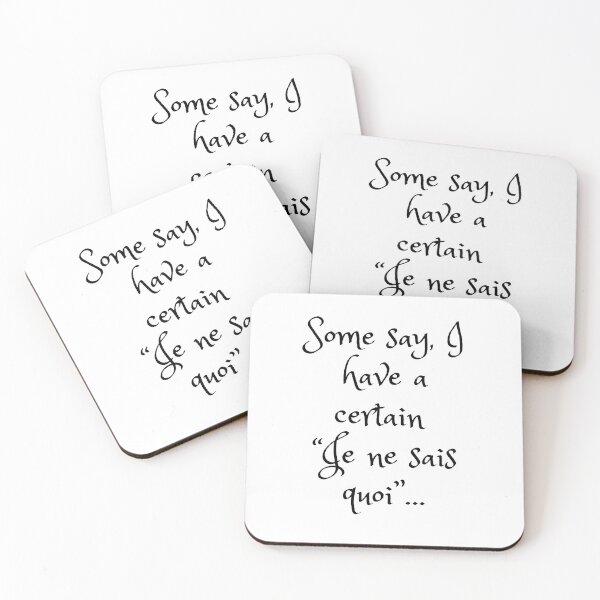 Some say, I
have a
Some say, I
have a
certain
“Je ne sais
Some say, I
have a
certain
“Je ne
quoi”
Some say, I
have a
certain
“Je ne sais
quoi”...